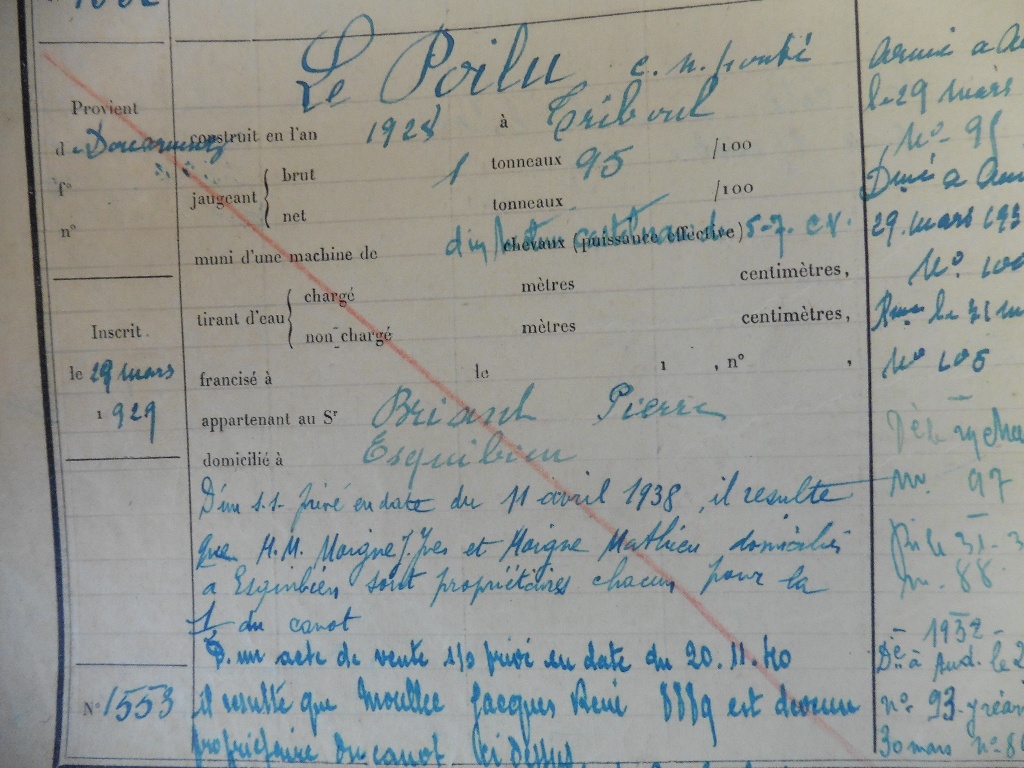 Le Poilu c. n. ponté
Provient
d Douarnenez
f°
n°
construit en l'an 1928 à Tréboul
jaugeant brut 1 tonneaux 95 /100
net tonneaux /100
muni d'une machine de chevaux (puissance effective) 5-7. CV.
tirant d'eau chargé mètres centimètres,
non chargé mètres centimètres,
Inscrit.
le 29 mars
1929
francisé à le 1 , n° ,
appartenant au Sr Briand Pierre
domicilié à Esquibien
D'un s.s. privé en date du 11 avril 1938, il resulte
que M.M. Moigne J. Yves et Moigne Mathieu domiciliés
a Esquibien sont propriétaires chacun pour la
1/2 du canot
D. un acte de vente s/s privé en date du 20.11.40
N° 1553
il resulte que Jacques René est devenu
propriétaire du canot ci dessus
Armé a
le 29 mars
N°- 95
29. mars 193
N°. 100
le 31
N° 105
n°. 97
31-3
n. 88
1932 -
n°- 93-
30 mars n° 8